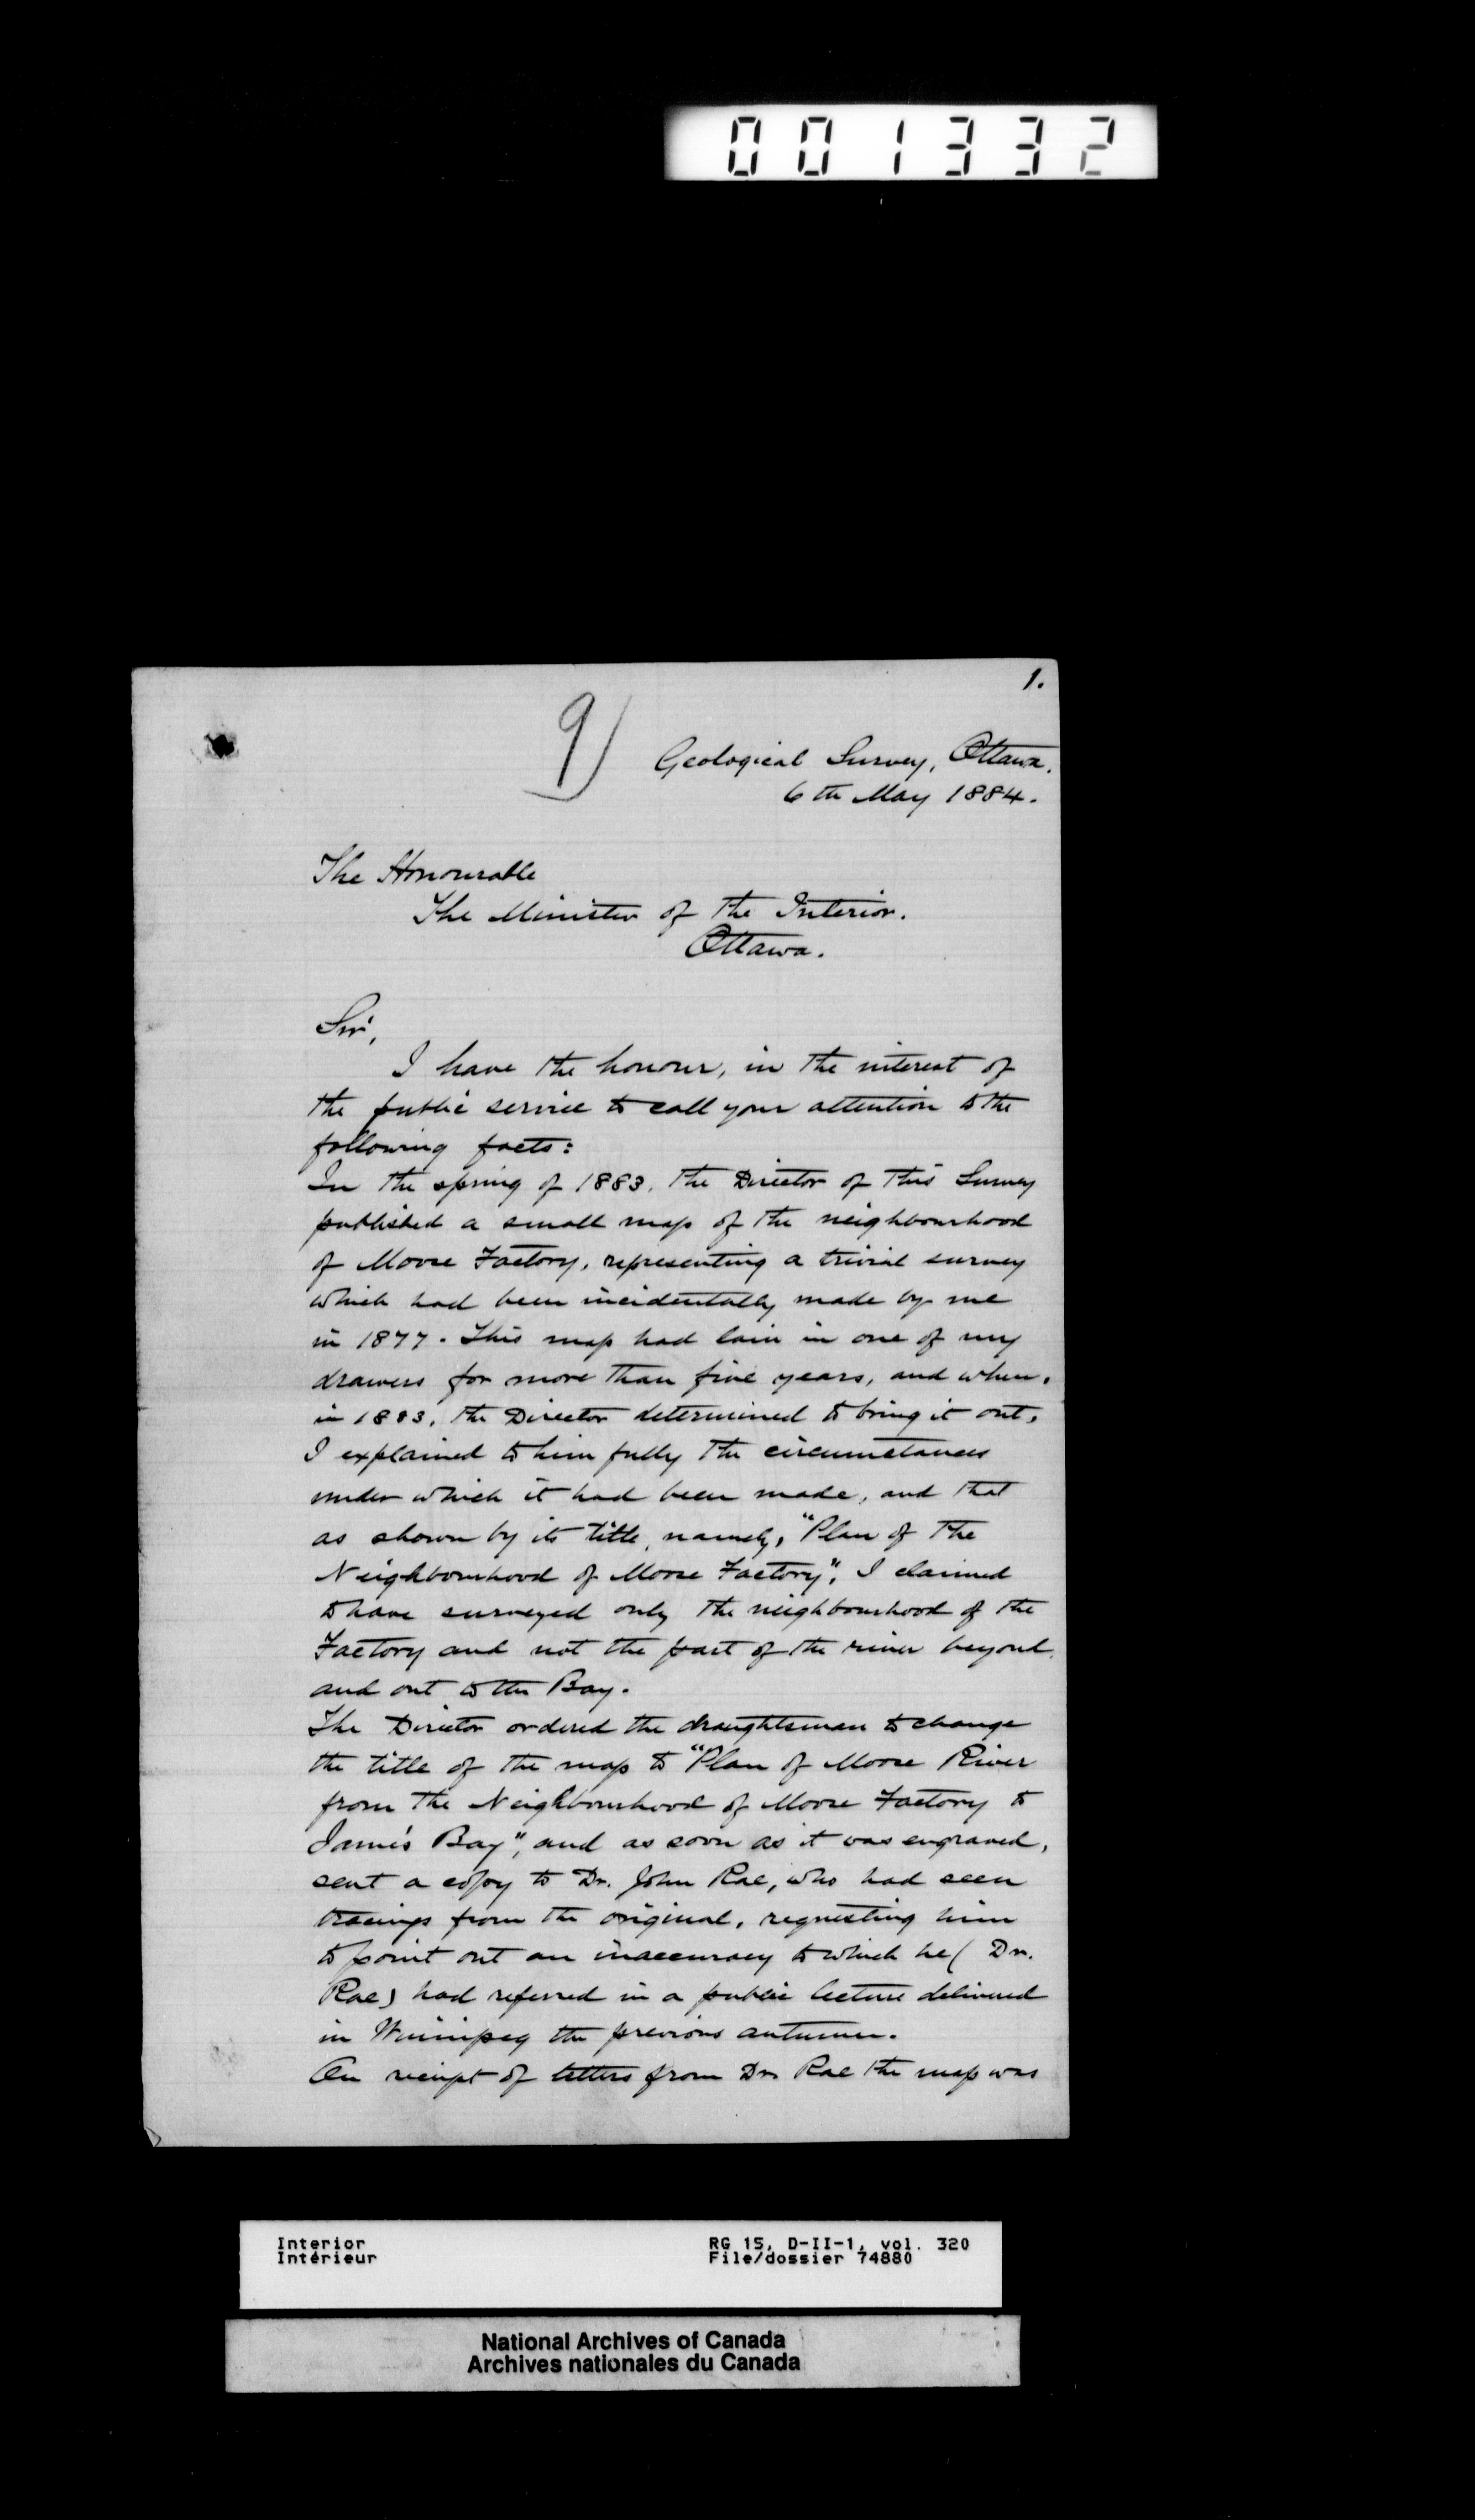 001332
1.
9)
Geological Survey, Ottawa.
6th May 1884.
The Honourable
The Minister of the Interior.
Ottawa.
Sir,
I have the honour, in the interest of
the public service to call your attention to the
following facts:
In the spring of 1883, the Director of this Survey
published a small map of the neighbourhood
of Moose Factory, representing a trivial survey
which had been incidentally made by me
in 1877. This map had lain in one of my
drawers for more than five years, and when,
in 1883, the Director determined to bring it out,
I explained to him fully the circumstances
under which it had been made, and that
as shown by its title, namely, "Plan of the
Neighbourhood of Moose Factory", I claimed
to have surveyed only the neighbourhood of the
Factory and not the part of the river beyond,
and out to the Bay.
The Director ordered the draughtsman to change
the title of the map to "Plan of Moose River
from the Neighbourhood of Moose Factory to
James Bay", and as soon as it was engraved,
sent a copy to Dr. John Rae, who had seen
tracings from the original, requesting him
to point out an inaccuracy to which he (Dr.
Rae) had referred in a public lecture delivered
in Winnipeg the previous autumn.
On receipt of letters from Dr. Rae the map was
Interior
Intérieur
RG 15, D-II-1, vol. 320
File/dossier 74880
National Archives of Canada
Archives nationales du Canada